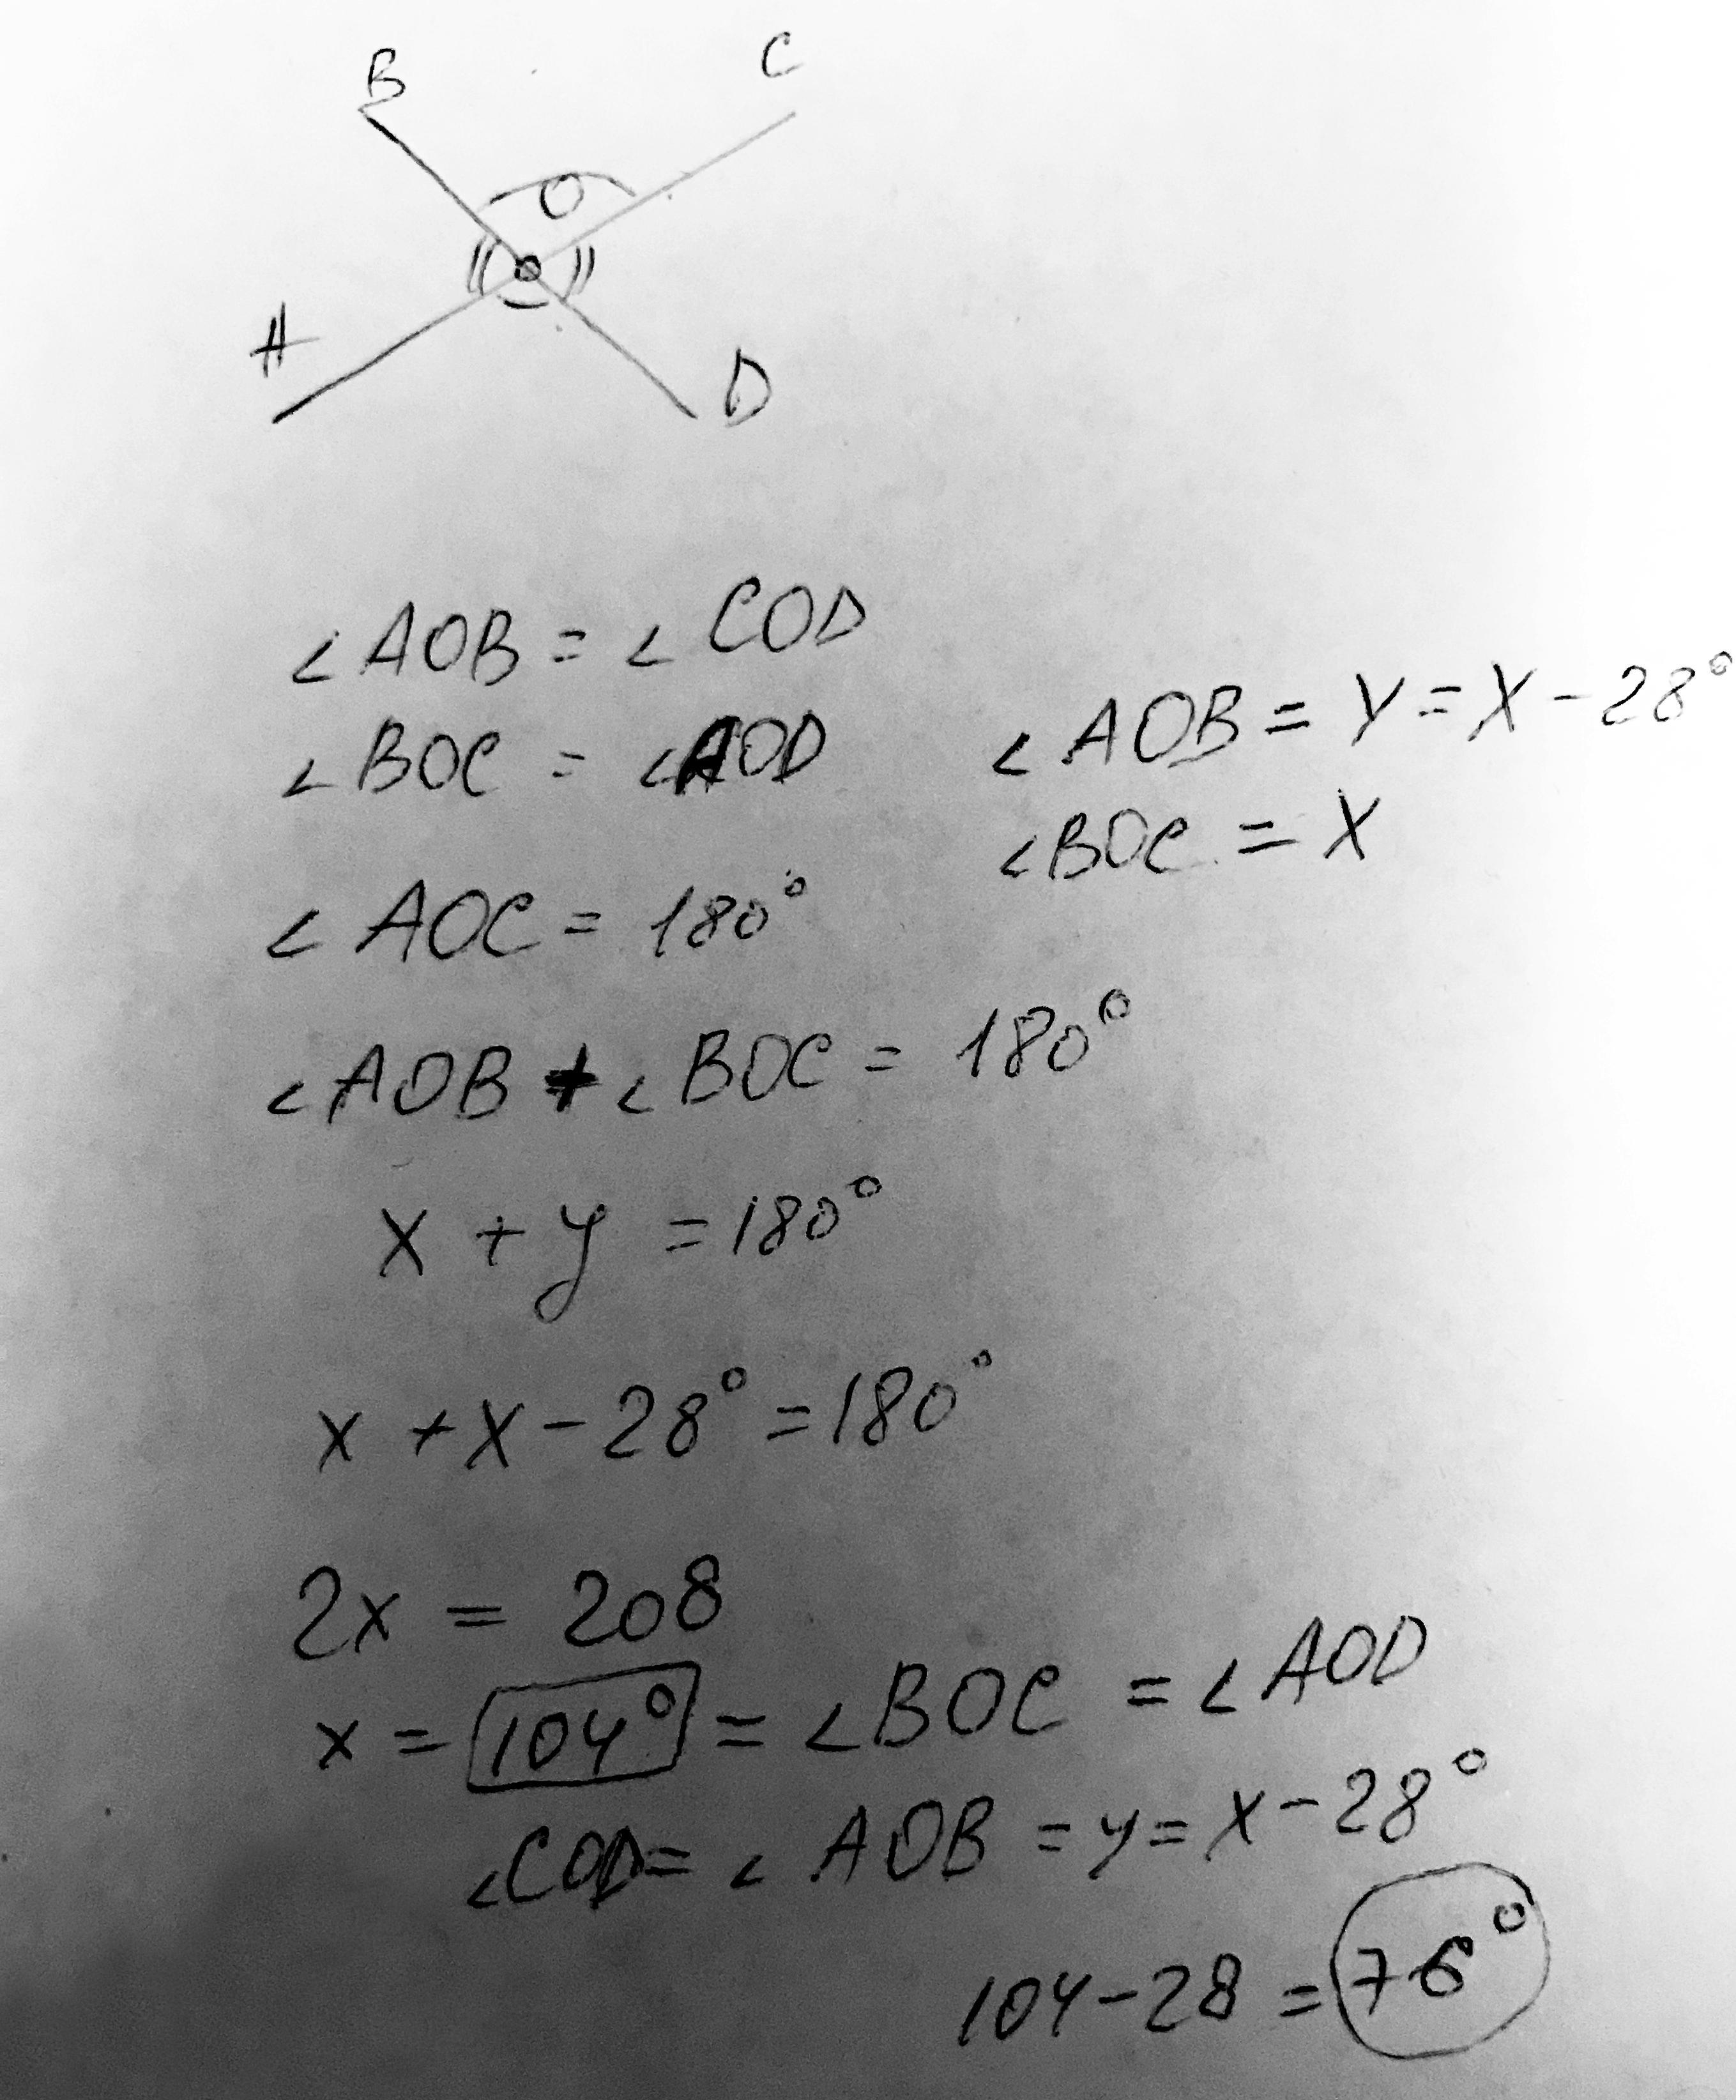 B C
O
A
D
∠AOB = ∠COD
∠BOC = ∠AOD
∠AOB = y = x - 28°
∠BOC = x
∠AOC = 180°
∠AOB + ∠BOC = 180°
x + y = 180°
x + x - 28° = 180°
2x = 208
x = 104° = ∠BOC = ∠AOD
∠COD = ∠AOB = y = x - 28°
104 - 28 = 76°